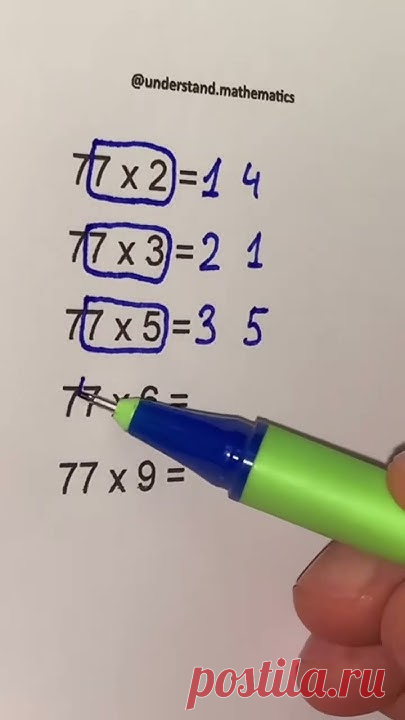 @understand.mathematics
77 x 2 = 1 4
77 x 3 = 2 1
77 x 5 = 3 5
77 x 6 =
77 x 9 =
postila.ru